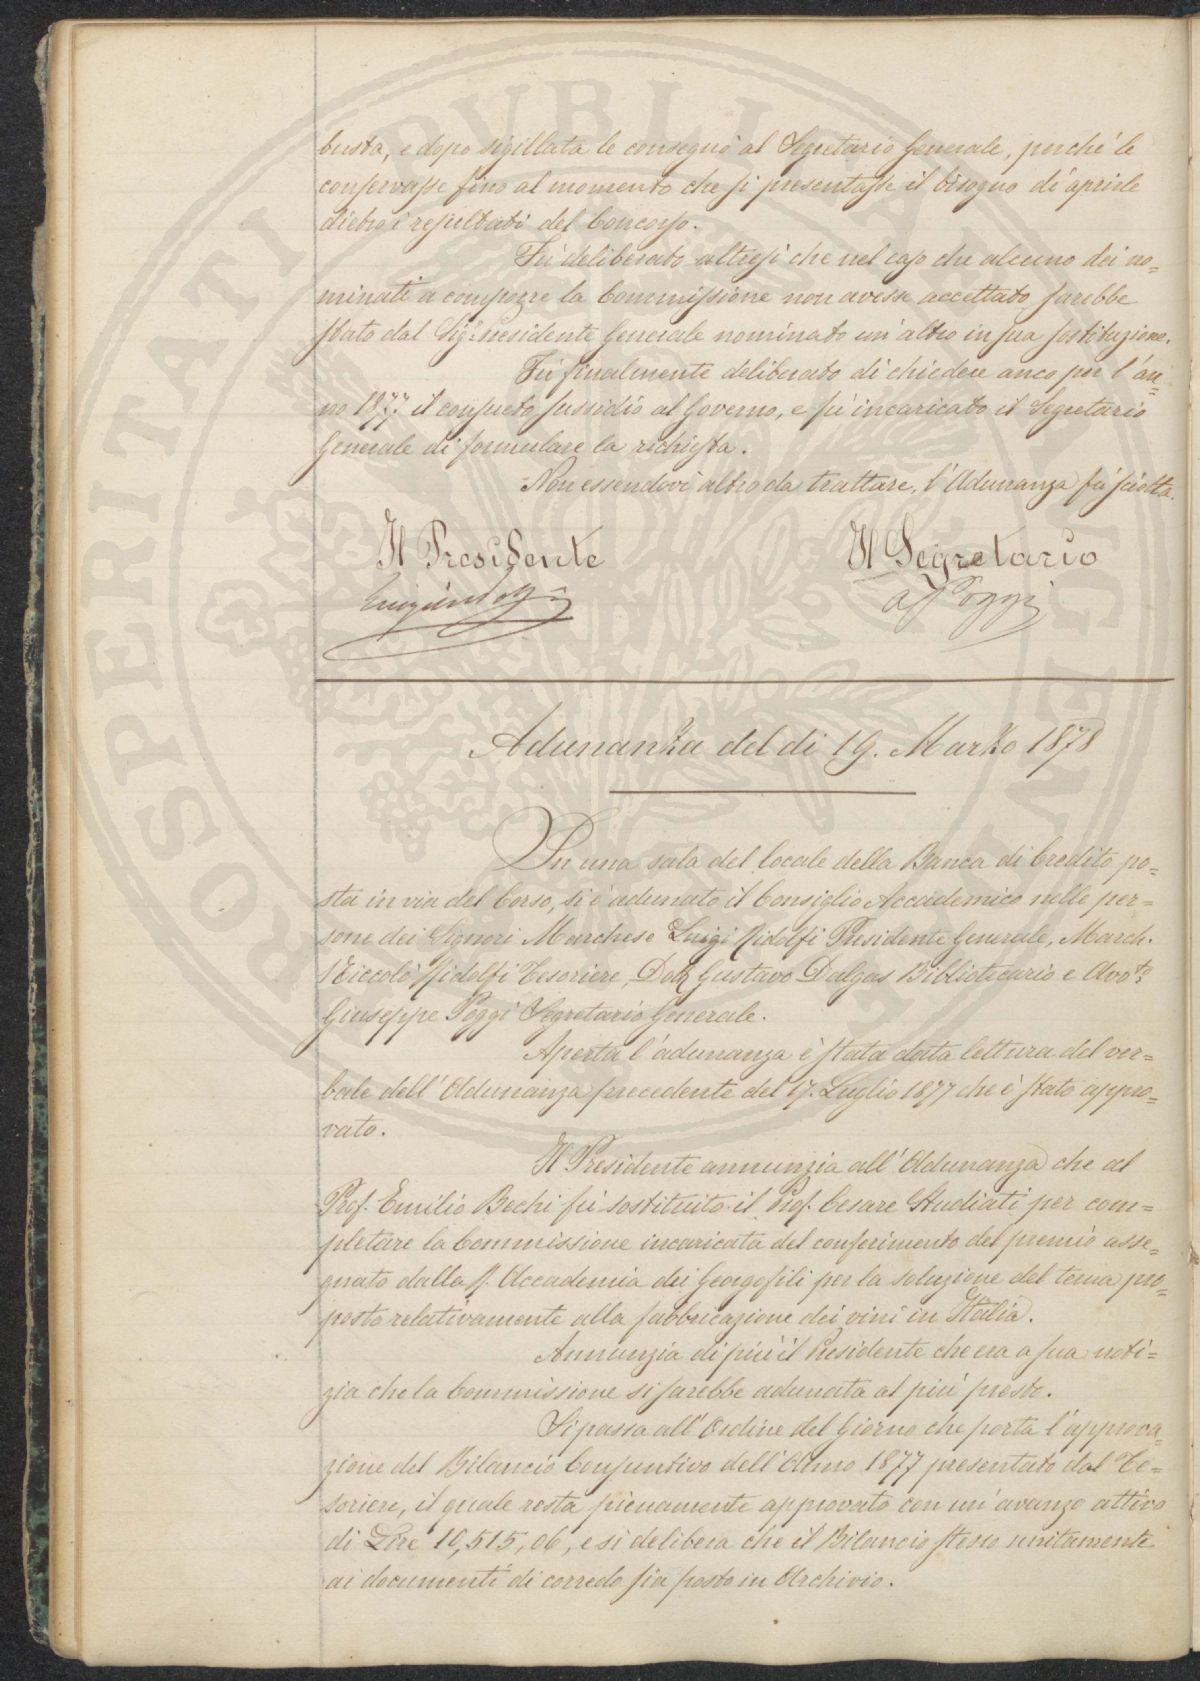 busta, e dopo sigillata le consegnò al Segretario Generale, perchè le
conservasse fino al momento che si presentasse il bisogno di aprirle
dietro i resultati del Concorso.
Fù deliberato altresì che nel caso che alcuno dei no=
minati a comporre la Commissione non avesse accettato sarebbe
stato dal Sig.r Presidente Generale nominato un'altro in sua sostituzione.
Fù finalmente deliberato di chiedere anco per l'an=
no 1877 il consueto sussidio al Governo, e fù incaricato il Segretario
Generale di formulare la richiesta.
Non essendovi altro da trattare, l'Adunanza fù sciolta.
Il Presidente
Il Segretario
Poggi
Adunanza del di 19. Marzo 1878
In una sala del locale della Banca di Credito po=
sta in via del Corso, si è adunato il Consiglio Accademico nelle per=
sone dei Signori Marchese Luigi Ridolfi Presidente Generale, March.
Niccolò Ridolfi Tesoriere, Dott Gustavo Dalgas Bibliotecario e Avv.to
Giuseppe Poggi Segretario Generale.
Aperta l'adunanza è stata data lettura del ver=
bale dell'Adunanza precedente del 17. Luglio 1877 che è stato appro=
vato.
Il Presidente annunzia all'Adunanza che al
Prof. Emilio Bechi fù sostituito il Prof. Cesare Studiati per com=
pletare la Commissione incaricata del conferimento del premio asse=
gnato dalla R. Accademia dei Georgofili per la soluzione del tema pro=
posto relativamente alla fabbricazione dei vini in Italia.
Annunzia di più il Presidente che era a sua noti=
zia che la Commissione si sarebbe adunata al più presto.
Si passa all'Ordine del Giorno che porta l'approva=
zione del Bilancio Consuntivo dell'Anno 1877 presentato dal Te=
soriere, il quale resta pienamente approvato con un'avanzo attivo
di Lire 10,515,06, e si delibera che il Bilancio stesso unitamente
ai documenti di corredo sia posto in Archivio.
PROSPERITATI PVBLICAE AVGENDAE